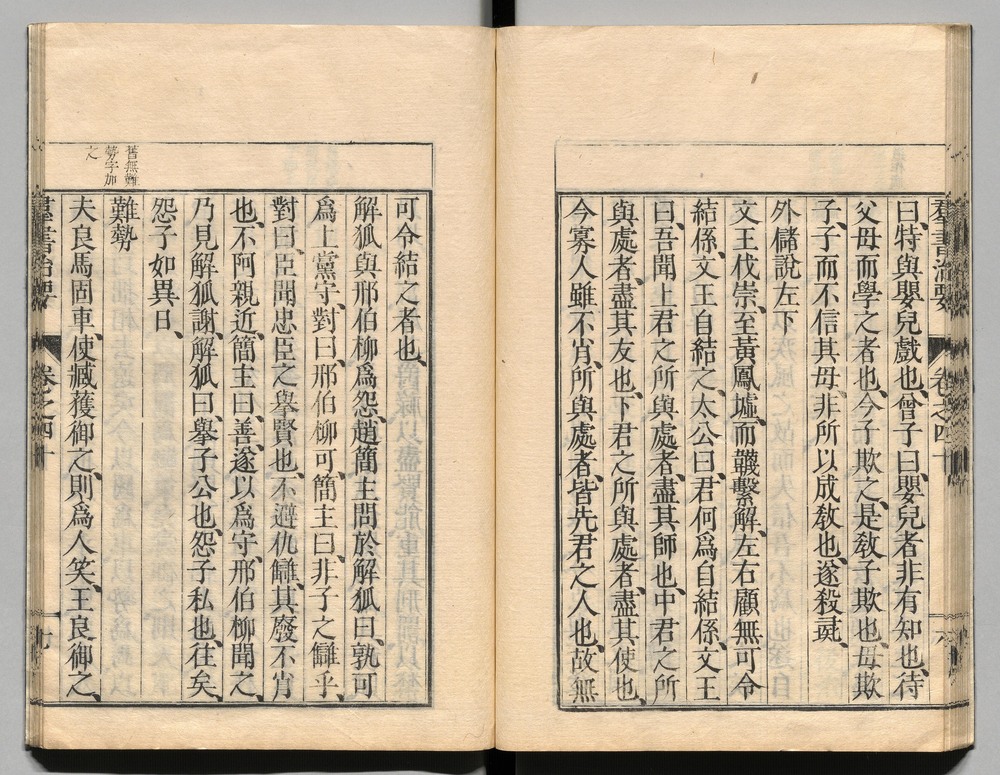 羣書治要 卷之四十 六
曰、特與嬰兒戲也、曾子曰、嬰兒者非有知也、待
父母而學之者也、今子欺之、是敎子欺也、母欺
子、子而不信其母、非所以成敎也、遂殺彘、
外儲說左下
文王伐崇、至黃鳳墟、而韈繫解、左右顧無可令
結係、文王自結之、太公曰、君何爲自結係、文王
曰、吾聞上君之所與處者、盡其師也、中君之所
與處者、盡其友也、下君之所與處者、盡其使也、
今寡人雖不肖、所與處者、皆先君之人也、故無
可令結之者也、
解狐與邢伯柳爲怨、趙簡主問於解狐曰、孰可
爲上黨守、對曰、邢伯柳可、簡主曰、非子之讎乎、
對曰、臣聞忠臣之擧賢也、不避仇讎、其廢不肖
也、不阿親近、簡主曰、善、遂以爲守、邢伯柳聞之、
乃見解狐謝、解狐曰、擧子公也、怨子私也、往矣、
怨子如異日、
舊無難
勢字加
之
難勢
夫良馬固車、使臧獲御之、則爲人笑、王良御之、
羣書治要 卷之四十 七